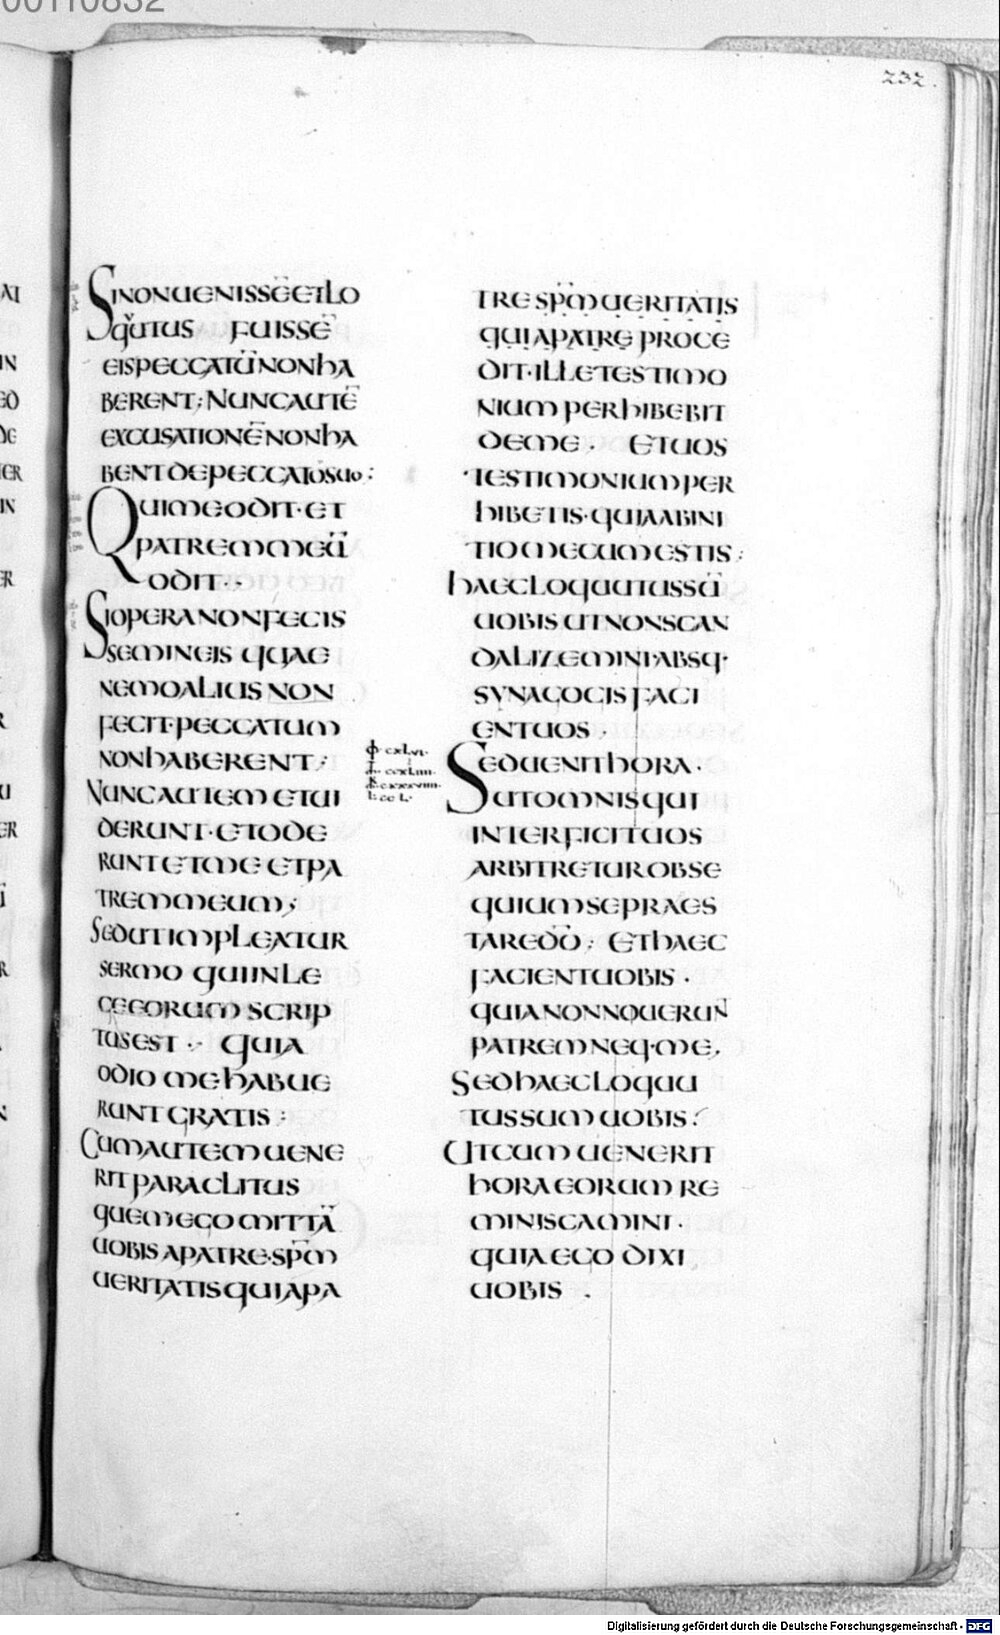 00110832
232.
SINONUENISSĒETLO
QUTUS FUISSĒ
EISPECCATŪNONhA
BERENT; NUNCAUTĒ
EXCUSATIONĒNONhA
BENTDEPECCATOSUO:
QUIMEODIT·ET
PATREMMEŪ
ODIT··
SIOPERANONFECIS
SEMINEIS QUAE
NEMOALIUS NON
FECIT·PECCATUM
NONhABERENT;
NUNCAUTEM ETUI
DERUNT·ETODE
RUNTETMEETPA
TREMMEUM;
SEDUTIMPLEATUR
SERMO QUIINLE
GEEORUM SCRIP
TUSEST·· QUIA
ODIO MEhABUE
RUNTGRATIS:
CUMAUTEMUENE
RIT PARACLITUS
QUEMEGOMITTĀ
UOBISAPATRE·SP̄M
UERITATISQUIAPA
TRE SP̄M UERITATIS
QUIAPATRE PROCE
DIT·ILLETESTIMO
NIUM PERhIBEBIT
DEME· ETUOS
TESTIMONIUMPER
hIBETIS·QUIAABINI
TIOMECUMESTIS:
hAECLOQUUTUSSŪ
UOBISUTNONSCAN
DALIZEMINI·ABSQ·
SYNAGOGISFACI
ENTUOS·
SEDUENIThORA·
UTOMNISQUI
INTERFICITUOS
ARBITRETUROBSE
QUIUMSEPRAES
TAREDŌ: EThAEC
FACIENTUOBIS·
QUIANONNOUERUN
PATREMNEQ·ME,
SEDhAECLOQUU
TUSSUMUOBIS:
UTCUMUENERIT
hORAEORUMRE
MINISCAMINI·
QUIAEGO DIXI
UOBIS ·
Digitalisierung gefördert durch die Deutsche Forschungsgemeinschaft - DFG